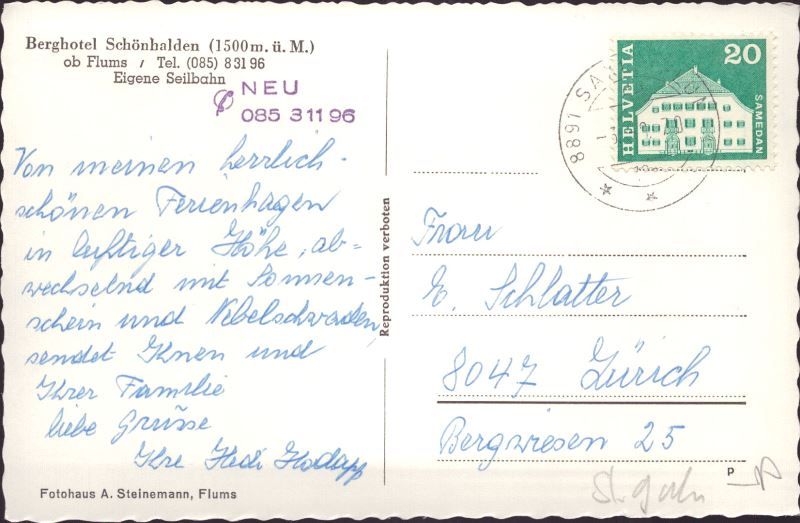 Berghotel Schönhalden (1500 m. ü. M.)
ob Flums / Tel. (085) 8 31 96
Eigene Seilbahn
NEU
085 3 11 96
Von meinen herrlich-
schönen Ferienhagen
in luftiger Höhe, ab=
wechselnd mit Sonnen-
schein und Nebelschwaden
sendet Ihnen und
Ihrer Familie
liebe Grüsse
Ihre Hedi Hodapp
Fotohaus A. Steinemann, Flums
Reproduktion verboten
8891
HELVETIA
20
SAMEDAN
Frau
E. Schlatter
8047 Zürich
Bergwiesen 25
P